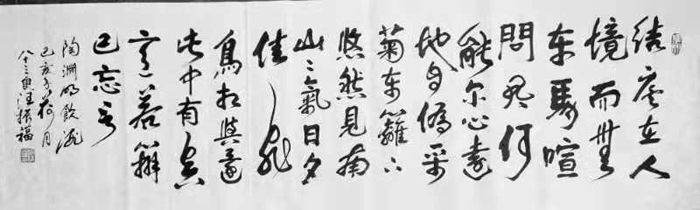 結庐在人
境而無
车馬喧
問君何
能尔心遠
地自偏采
菊东籬下
悠然見南
山々氣日夕
佳飛
鳥相與還
此中有真
意辩
已忘言
陶渊明飲酒
己亥年荷月
八十三叟汪振福